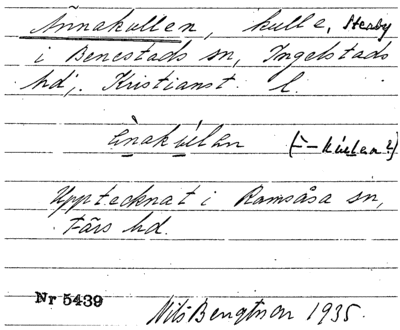 Ännakullen, kulle,
i Benestads sn, Ingelstads
hd, Kristianst. l.
Upptecknat i Ramsåsa sn,
Färs hd.
Nr 5439
Nils Bengtson 1935.